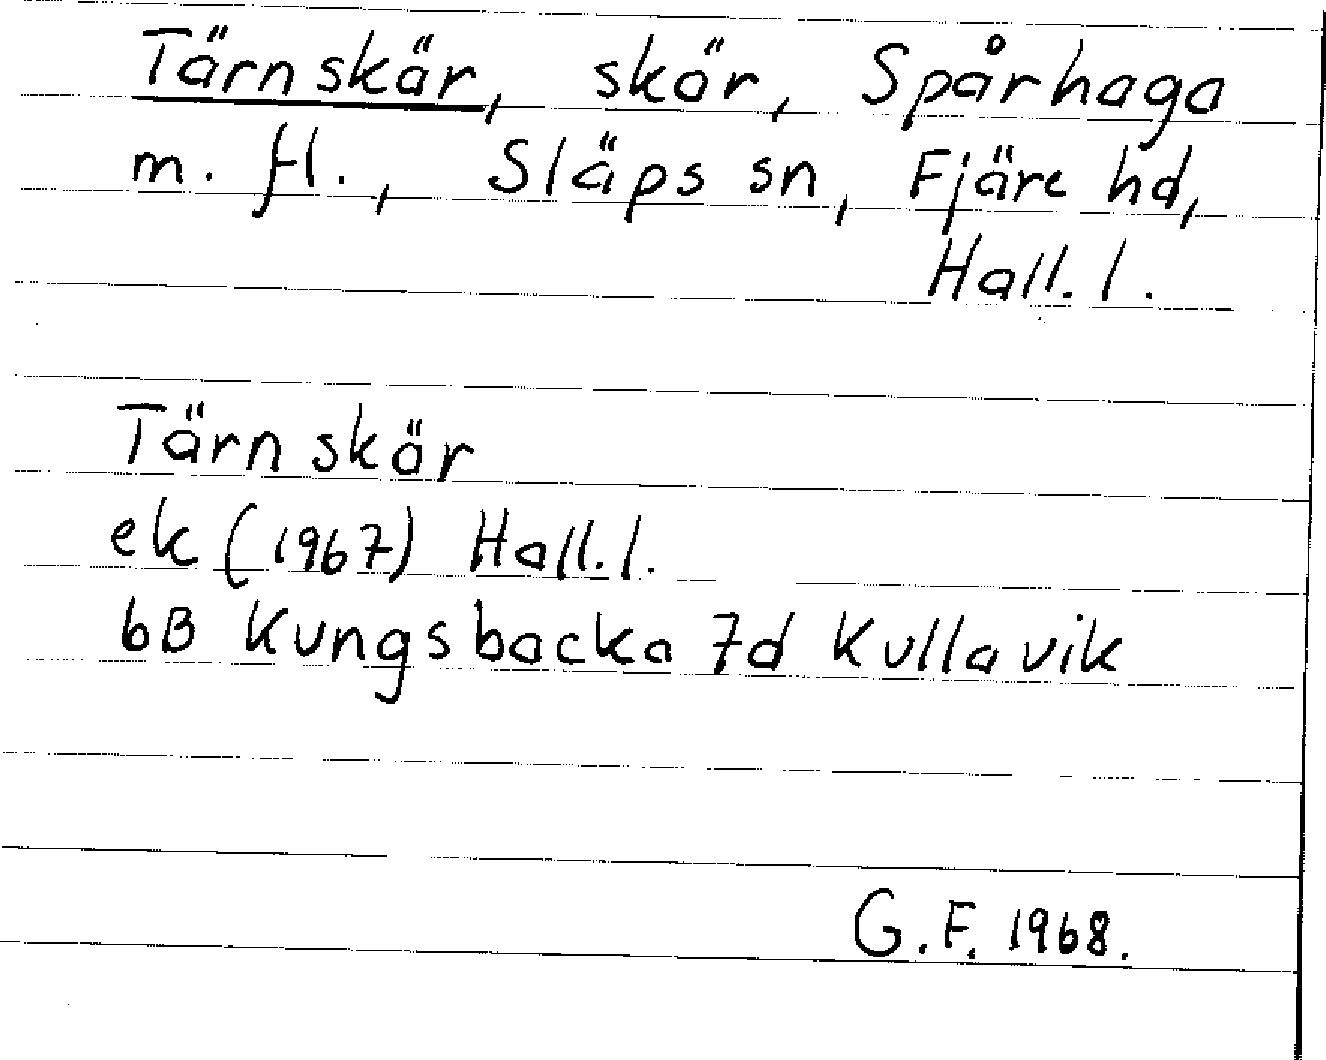 Tärnskär, skär, Spårhaga
m. fl., Släps sn, Fjäre hd,
Hall. l.
Tärnskär
ek (1967) Hall. l.
6B Kungsbacka 7d Kullavik
G. F. 1968.